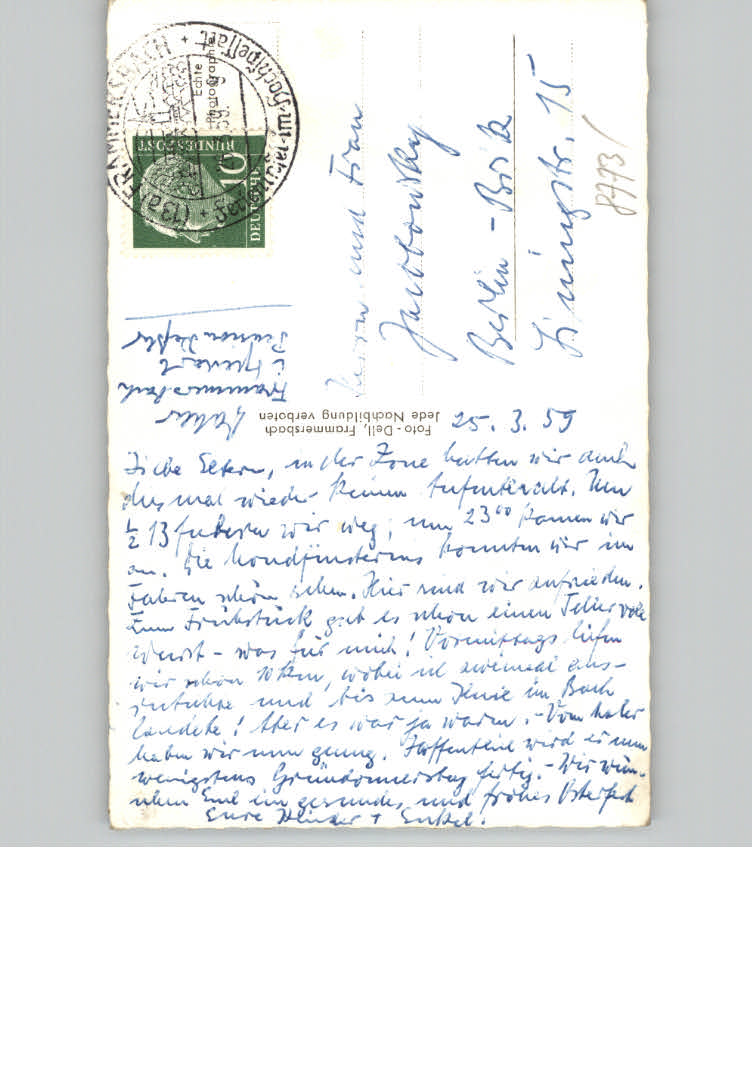 25. 3. 59
Liebe Eltern, in der Zone hatten wir auch
diesmal wieder keinen Aufenthalt. Um
½ 13 fuhren wir weg, um 23⁰⁰ kamen wir
an. Die Mondfinsternis konnten wir im
Fahren schön sehen. Hier sind wir zufrieden.
Zum Frühstück gab es schon einen Teller voll
Wurst - was für mich! Vormittags liefen
wir schon 10 km, wobei ich zweimal aus-
rutschte und bis zum Knie im Bach
landete! Aber es war ja warm. - Vom Maler
haben wir nun genug. Hoffentlich wird er nun
wenigstens Gründonnerstag fertig. - Wir wün-
schen Euch ein gesundes und frohes Osterfest
Eure Kinder + Enkel.
Frammersbach
i. Spessart
Pension
Foto - Dell, Frammersbach
Jede Nachbildung verboten
Herrn und Frau
Jacobowsky
Berlin - Britz
15
87731
Echte
Photographie
DEUTSCHE
BUNDESPOST
10
(13a) FRAMMERSBACH
im Hochspessart